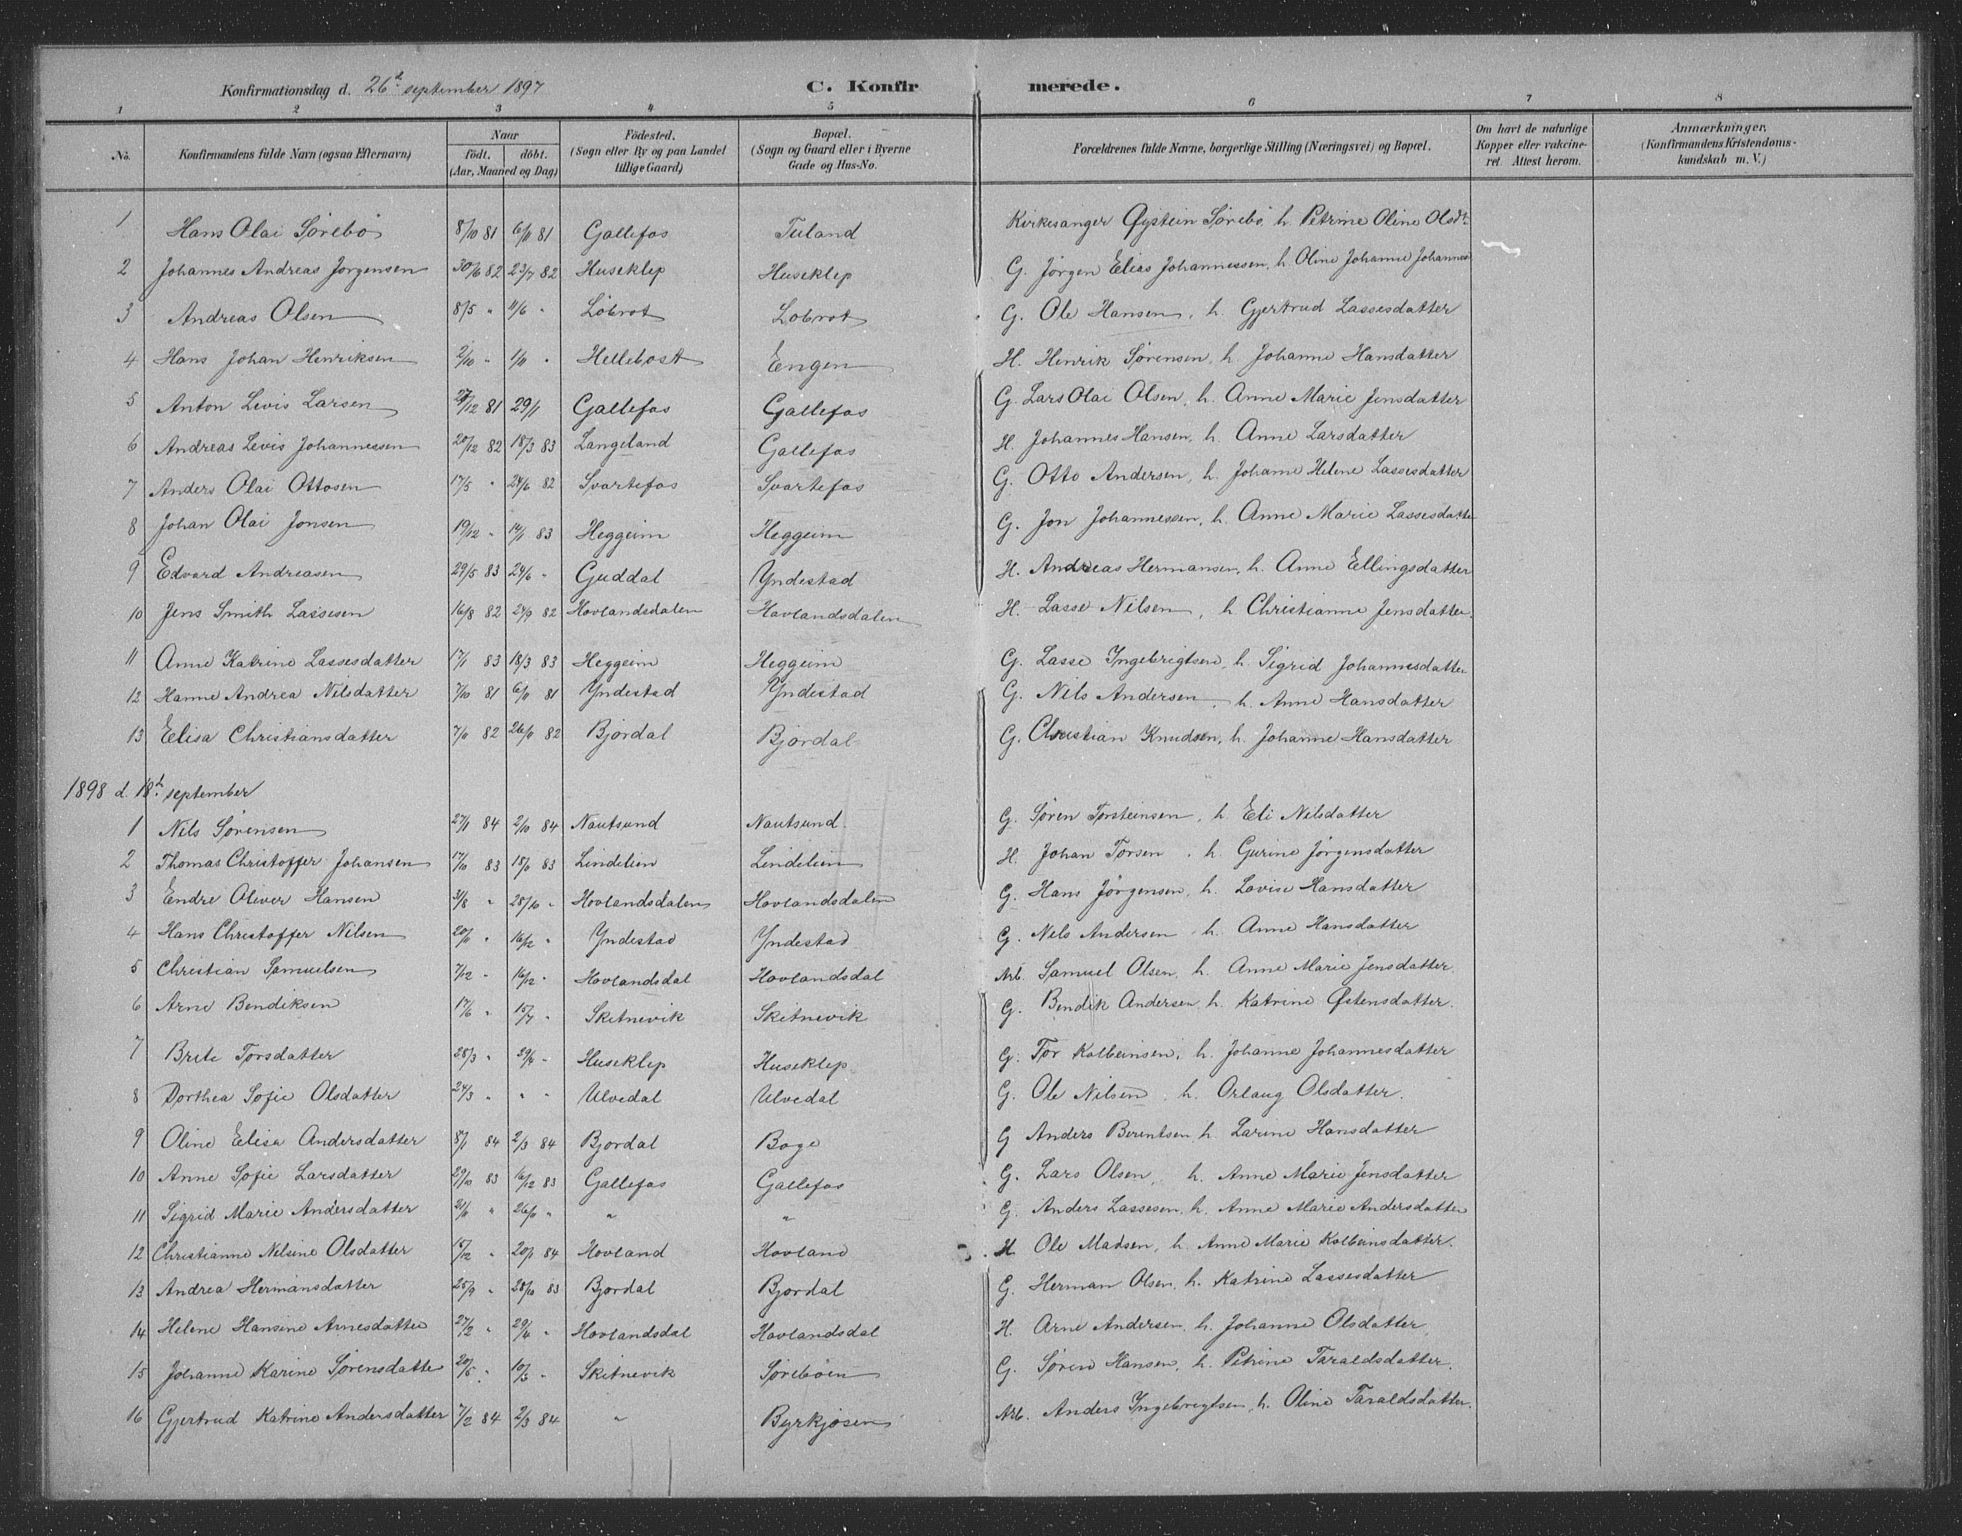 Konfirmationsdag d. 26d september 1897 C. Konfir merede.
1 2 3 4 5 6 7 8
No. Konfirmandens fulde Navn (ogsaa Efternavn) Naar födt. döbt. (Aar, Maaned og Dag) Födested. (Sogn eller By og paa Landet tillige Gaard) Bopæl. (Sogn og Gaard eller i Byerne Gade og Hus-No. Forældrenes fulde Navne, borgerlige Stilling (Næringsvei) og Bopæl. Om havt de naturlige Kopper eller vakcineret. Attest herom. Anmærkninger. (Konfirmandens Kristendomskundskab m. V.)
1 Hans Olai Sørebø 8/10 81 6/11 81 Gallefos Tuland Kirkesanger Øystein Sørebø, h. Petrine Oline Olsdt.
2 Johannes Andreas Jørgensen 30/6 82 23/7 82 Huseklep Huseklep G. Jørgen Elias Johannessen, h. Oline Johanne Johannes
3 Andreas Olsen 8/5 " 11/6 " Löbrot Lobrot G. Ole Hansen, h. Gjertrud Lassesdatter
4 Hans Johan Henriksen 2/10 " 1/11 " Hellebost Engen H. Henrik Sørensen, h. Johanne Hansdatter
5 Anton Levis Larsen 27/12 81 29/1 Gallefos Gallefos G. Lars Olai Olsen, h. Anne Marie Jensdatter
6 Andreas Levis Johannessen 20/12 82 18/3 83 Langeland Gallefos H. Johannes Hansen, h. Anne Larsdatter
7 Anders Olai Ottosen 17/5 " 24/6 82 Svartefos Svartefos G. Otto Andersen, h. Johanne Helene Lassesdatter
8 Johan Olai Jonsen 19/12 " 14/1 83 Heggeim Heggeim G. Jon Johannessen, h. Anne Marie Lassesdatter
9 Edvard Andreasen 29/5 83 24/6 " Guddal Yndestad H. Andreas Hermansen, h. Anne Ellingsdatter
10 Jens Smith Lassesen 16/8 82 24/9 82 Hovlandsdalen Hovlandsdalen H. Lasse Nilsen, h. Christianne Jensdatter.
11 Anne Katrine Lassesdatter 17/1 83 18/3 83 Heggeim Heggeim G. Lasse Ingebrigtsen, h. Sigrid Johannesdatter
12 Hanne Andrea Nilsdatter 7/10 81 6/11 81 Yndestad Yndestad G. Nils Andersen, h. Anne Hansdatter
13 Elisa Christiansdatter 82 82 Bjordal Bjordal G. Christian Knudsen, h. Johanne Hansdatter
1898 d. 18d. september
1 Nils Sørensen 27/1 84 2/10 84 Nautsund Nautsund. G. Søren Torsteinsen, h. Eli Nilsdatter
2 Thomas Christoffer Johansen 17/10 83 83 Lindelien Lindelien H. Johan Torsen, h. Gurine Jørgensdatter
3 Endre Oliver Hansen 31/8 " 28/10 " Hovlandsdalen Hovlandsdalen G. Hans Jørgensen, h. Lovise Hansdatter
4 Hans Christoffer Nilsen 20/11 " 16/12 " Yndestad Yndestad G. Nels Andersen, h. Anne Hansdatter
5 Christian Samuelsen 7/12 " 16/12 " Hovlandsdal Hovlandsdal Arb. Samuel Olsen, h. Anne Marie Jensdatter.
6 Arne Bendiksen 17/6 " 15/7 " Skitnevik Skitnevik G. Bendik Andersen, h. Katrine Østensdatter.
7 Brite Torsdatter 28/3 " 29/4 " Huseklep Huseklep G. Tor Kolbeinsen, h. Johanne Johannesdatter
8 Dorthea Sofie Olsdatter 24/3 " " " Ulvedal Ulvedal G. Ole Nilsen, h. Orlaug Olsdatter.
9 Oline Elisa Andersdatter 8/1 84 2/3 84 Bjordal Boge G Anders Berentsen, h. Larine Hansdatter
10 Anne Sofie Larsdatter 29/10 83 16/12 83 Gallefos Gallefos G. Lars Olsen, h. Anne Marie Jensdatter
11 Sigrid Marie Andersdatter 21/11 " " " " G. Anders Lassesen, h. Anne Marie Andersdatter
12 Christianne Nilsine Olsdatter 15/12 " 20/1 84 Hovland Hovland H. Ole Madsen, h. Anne Marie Kolbeinsdatter.
13 Andrea Hermansdatter 25/9 " 28/10 83 Bjordal Bjordal G. Herman Olsen, h. Katrine Lassesdatter
14 Helene Hansine Arnesdatter 27/2 " 29/4 " Hovlandsdal Hovlandsdal H. Arne Andersen, h. Johanne Olsdatter
15 Johanne Karine Sørensdatter 20/5 " " Skitnevik Sørebøen G. Søren Hansen, h. Petrine Taraldsdatter.
16 Gjertrud Katrine Andersdatter 7/2 84 2/3 84 " Byrkjosen Arb. Anders Ingebrigtsen, h. Oline Taraldsdatter.